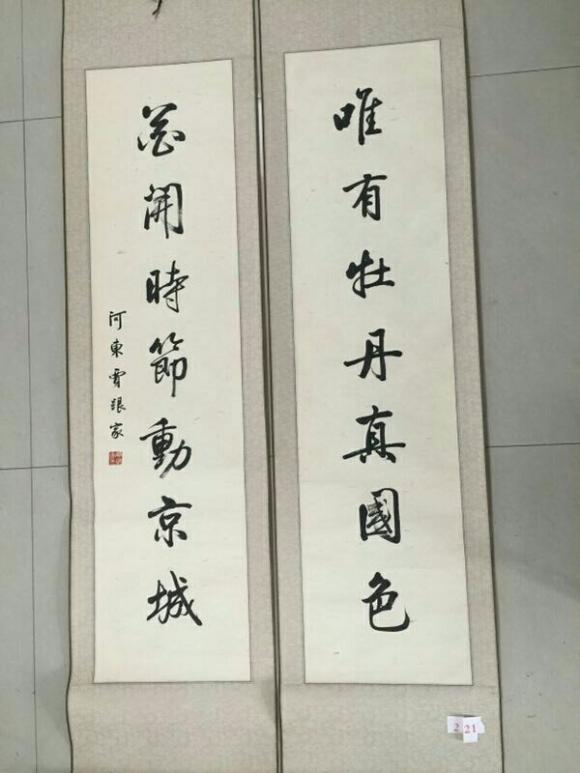 唯有牡丹真國色
花開時節動京城
河東
家
2 21